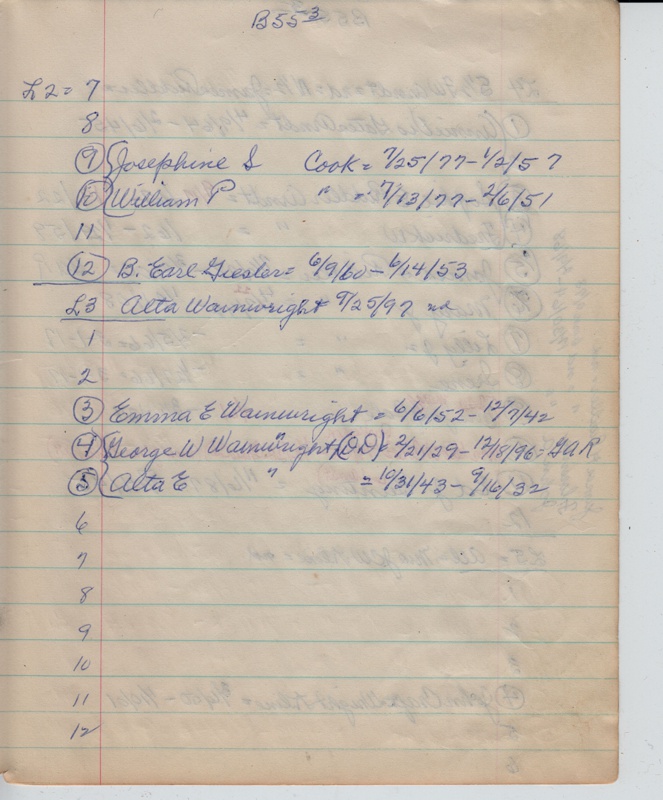 B55-3
L2 = 7
8
9 Josephine S Cook = 7/25/77-1/2/57
10 William P " = 7/13/77-2/6/51
11
12 B. Earl Giesler = 6/9/60-6/14/53
L3 Alta Wainwright 9/25/97 nd
1
2
3 Emma E Wainwright = 6/6/52-12/7/42
4 George W Wainwright (DD) = 2/21/29-12/18/96 = GAR
5 Alta E " = 10/31/43-9/16/32
6
7
8
9
10
11
12